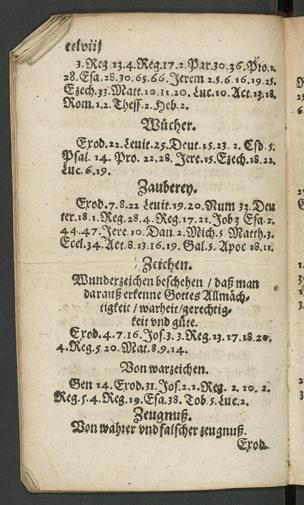 cclviij
3.Reg 13.4.Reg.17.2.Par.30.36.Pro.1.
28.Esa.28.30.65.66.Jerem 2.5.6.16.19.25.
Ezech.33.Matt.10.11.20.Luc.10.Act.13.18.
Rom.1.2.Thess.2.Heb.2.
Wücher.
Exod.22.Leuit.25.Deut.15.23.2.Esd.5.
Psal.14.Pro.22.28.Jere.15.Ezech.18.22.
Luc.6.19.
Zauberey.
Exod.7.8.22 Leuit.19.20.Num 23.Deu
ter.18.1.Reg.28.4.Reg.17.21.Job 3 Esa.2.
44.47.Jere.10.Dan.2.Mich.5 Matth.3.
Eccl.34.Act.8.13.16.19.Gal.5.Apoc 18.11.
Zeichen.
Wunderzeichen beschehen / daß man
darauß erkenne Gottes Allmäch-
tigkeit / warheit / gerechtig-
keit vnd güte.
Exod.4.7.16.Jos.3.3.Reg.13.17.18.20.
4.Reg.5 20.Mat.8.9.14.
Von warzeichen.
Gen 14.Exod.31.Jos.2.1.Reg.2.10.2.
Reg.5.4.Reg.19.Esa.38.Tob.5.Luc.2.
Zeugnuß.
Von wahrer vnd falscher zeugnuß.
Exod.